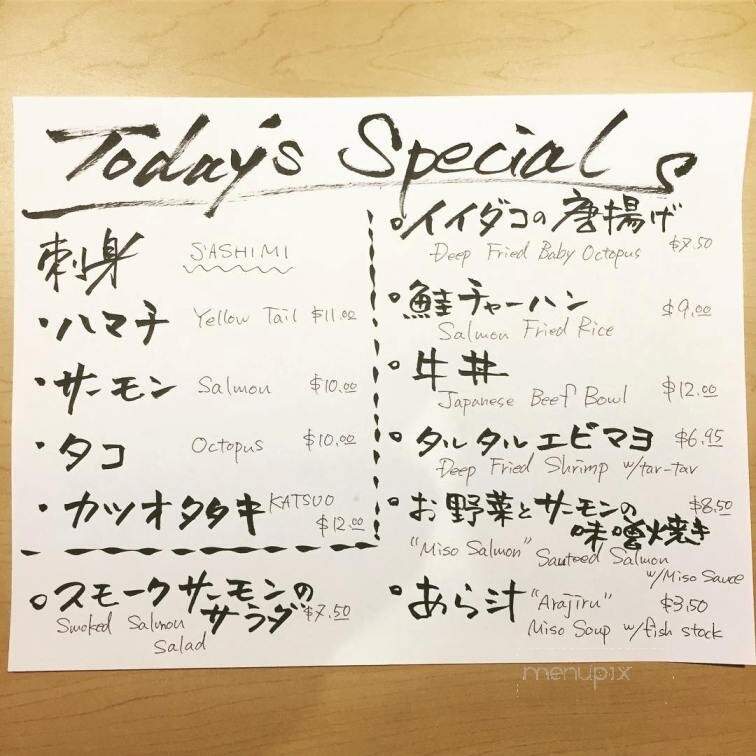 Today's Specials
刺身 SASHIMI
・ハマチ Yellow Tail $11.00
・サーモン Salmon $10.00
・タコ Octopus $10.00
・カツオタタキ KATSUO
$12.00
○スモークサーモンの
サラダ $7.50
Smoked Salmon
Salad
○イイダコの唐揚げ
Deep Fried Baby Octopus $7.50
・鮭チャーハン $9.00
Salmon Fried Rice
・牛丼 $12.00
Japanese Beef Bowl
・タルタルエビマヨ $6.95
Deep Fried Shrimp w/tar-tar
・お野菜とサーモンの $8.50
味噌焼き
"Miso Salmon" Sauteed Salmon
w/Miso Sauce
・あら汁 "Arajiru" $3.50
Miso Soup w/fish stock
menupix